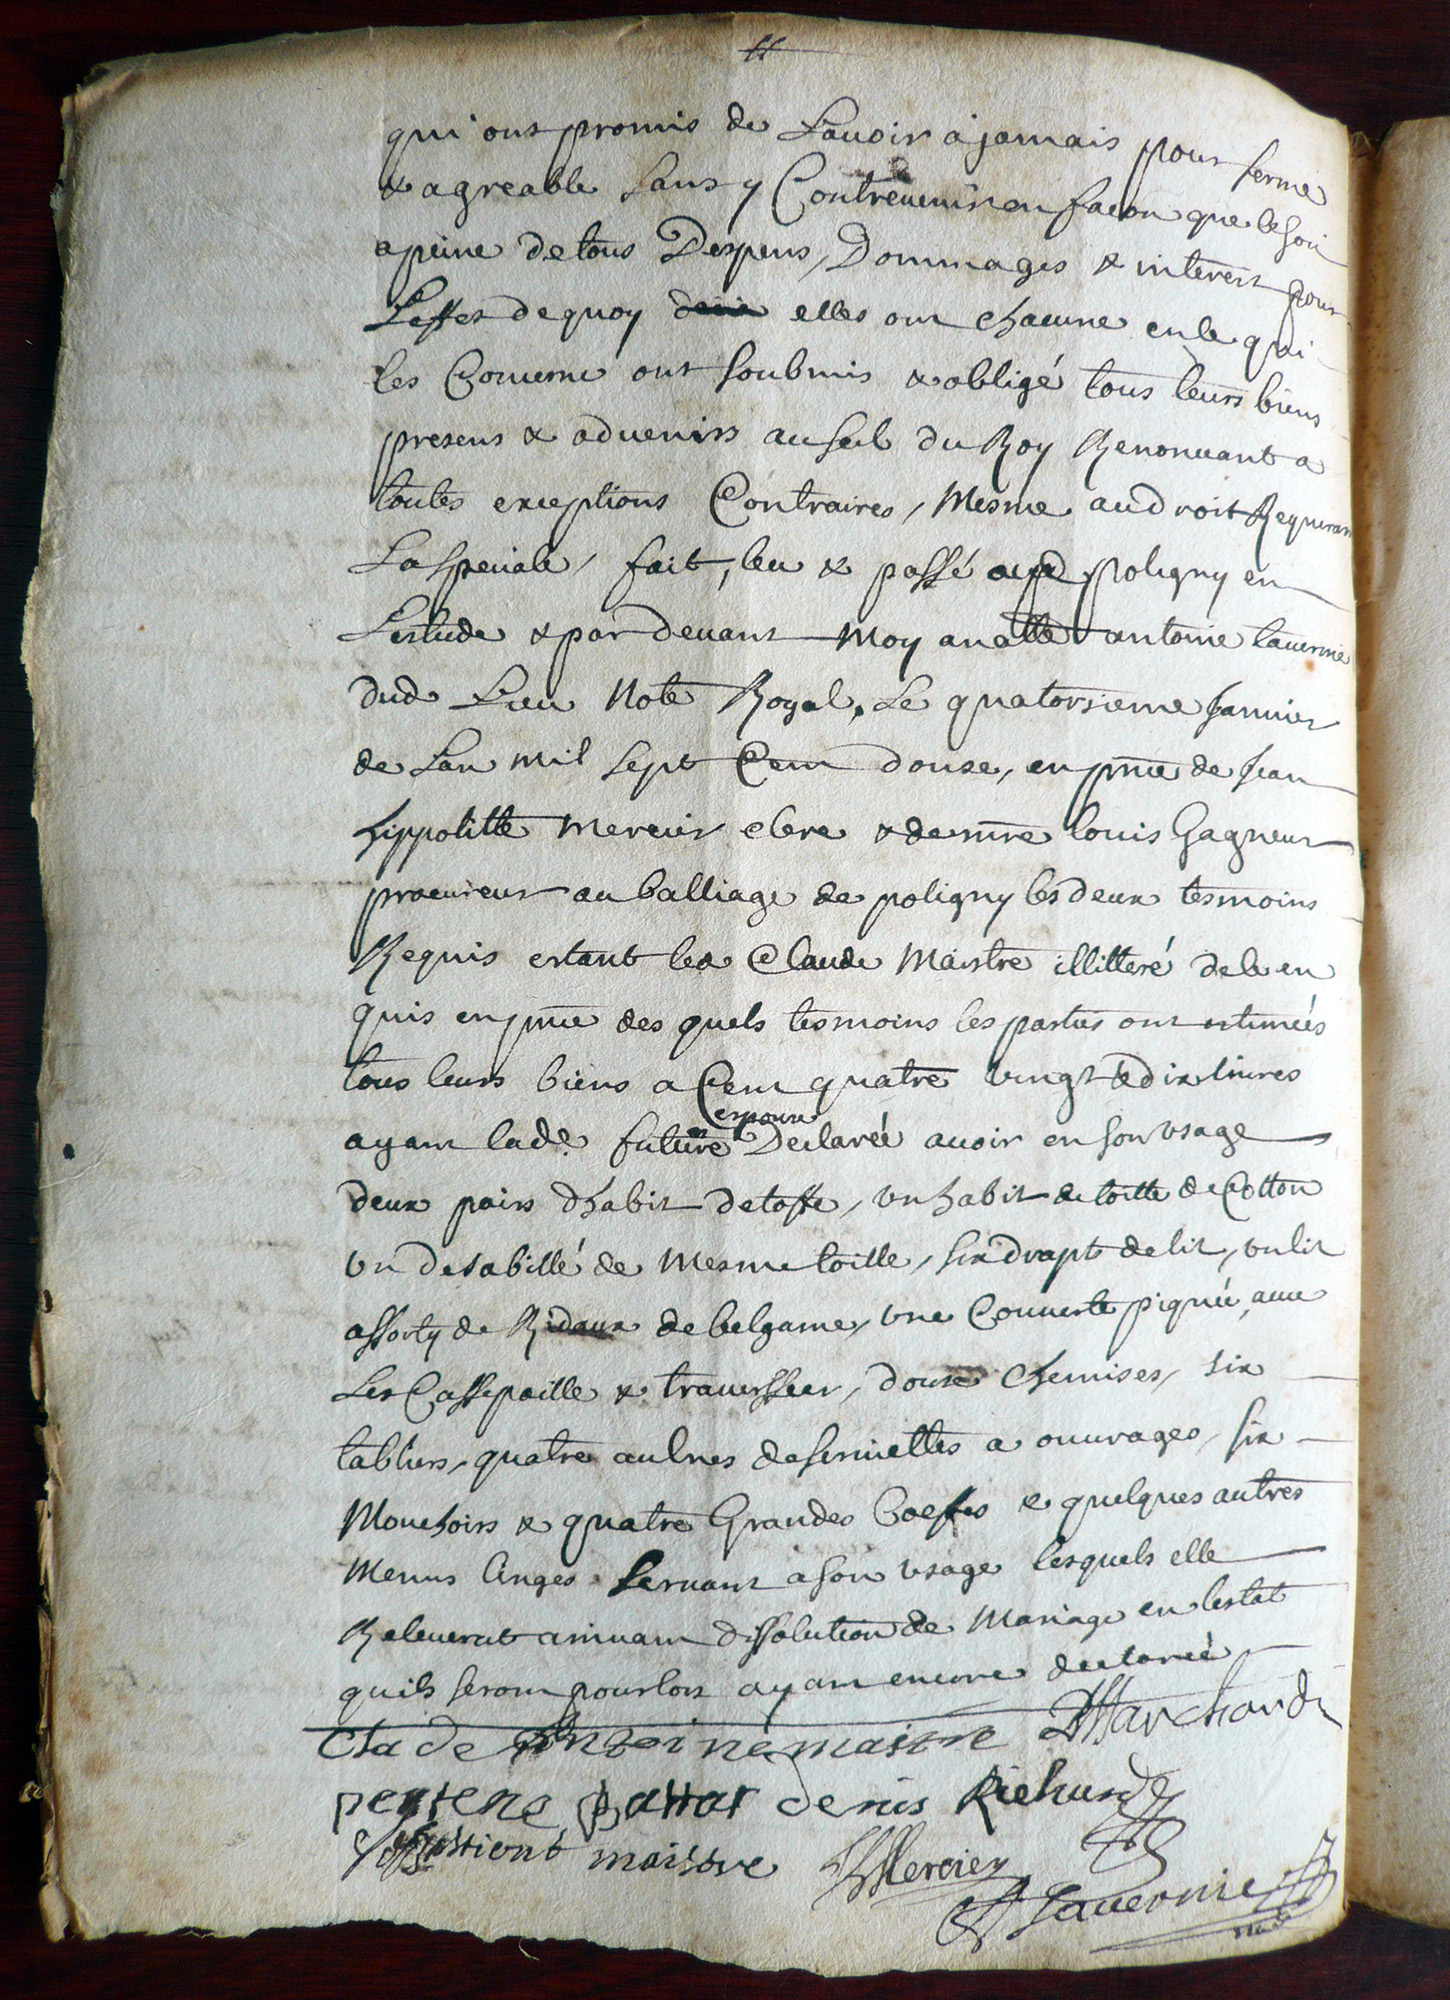 qui ont promis de Lauoir a jamais pour ferme
& agreable sans y Contreuenir en facon que le soit
a peine de tous Despens, Dommages & interest pour
Leffet de quoy elles ont chacune en le qui
les Concerne ont soubmis & obligé tous leurs biens
presens & aduenirs au seel du Roy Renoncant a
toutes exceptions Contraires, Mesme au droit Requerant
La speciale, fait, leu & passé aud poligny en
Lestude & par deuant Moy anatte antoine tauernie
dud Lieu Note Royal, Le quatorsieme Januier
de Lan mil sept Cent douse, en pnce de Jean
hippolitte Mercier clerc & de mre louis Gagneur
procureur au balliage de poligny les deux tesmoins
Requis estant led Claude Maistre illitteré de le en
quis en pnce des quels tesmoins les parties ont estimées
tous leurs biens a Cent quatre vingt & dix liures
espouse
ayant lade. future Declarée auoir en son vsage
deux pairs dhabit detoffe, vn habit de toille de Cotton
vn desabillé de Mesme toille, six drapt de lit, vn lit
assorty de Ridaux de belgame, vne Couuerte piquée, auec
Les Cassepaille & trauersier, douse chemises, six
tabliers, quatre aulnes de seruiettes a ouurages, six
Mouchoirs & quatre Grandes Coeffes & quelques autres
Menus linges seruant a son vsage lesquels elle
Releuerat arriuant dissolution de Mariage en lestat
quils seront pour lors ayant encore declarée
Clade Antoine maistre Marchand
denis Richard
maistre Mercier
Tauernie